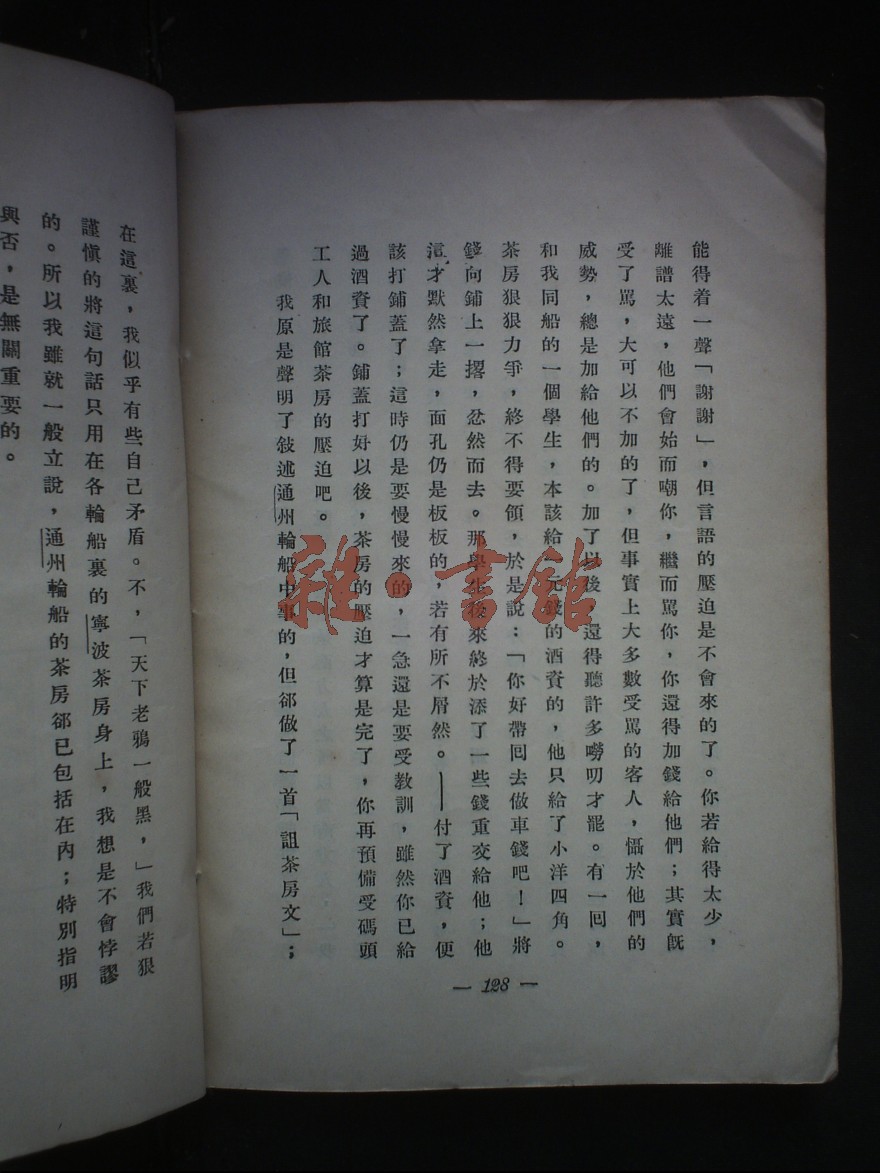 能得着一聲「謝謝」，但言語的壓迫是不會來的了。你若給得太少，
離譜太遠，他們會始而嘲你，繼而罵你，你還得加錢給他們；其實旣
受了罵，大可以不加的了，但事實上大多數受罵的客人，懾於他們的
威勢，總是加給他們的。加了以後，還得聽許多嘮叨才罷。有一囘，
和我同船的一個學生，本該給一元錢的酒資的，他只給了小洋四角。
茶房狠狠力爭，終不得要領，於是說：「你好帶囘去做車錢吧！」將
錢向鋪上一撂，忿然而去。那學生後來終於添了一些錢重交給他；他
這才默然拿走，面孔仍是板板的，若有所不屑然。——付了酒資，便
該打鋪蓋了；這時仍是要慢慢來的，一急還是要受教訓，雖然你已給
過酒資了。鋪蓋打好以後，茶房的壓迫才算是完了，你再預備受碼頭
工人和旅館茶房的壓迫吧。
我原是聲明了敍述通州輪船中事的，但卻做了一首「詛茶房文」；
— 128 —
在這裏，我似乎有些自己矛盾。不，「天下老鴉一般黑，」我們若狠
謹愼的將這句話只用在各輪船裏的寧波茶房身上，我想是不會悖謬
的。所以我雖就一般立說，通州輪船的茶房卻已包括在內；特別指明
與否，是無關重要的。
雜·書館